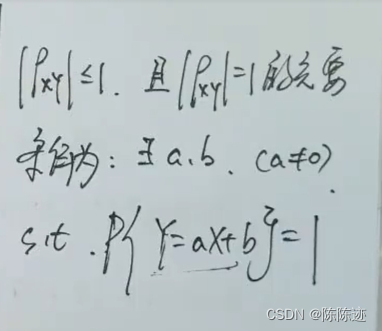 |ρ_XY|≤1. 且|ρ_XY|=1的充要
条件为: ∃ a、b. (a≠0)
s.t. P{Y=aX+b}=1
CSDN @陈陈迹